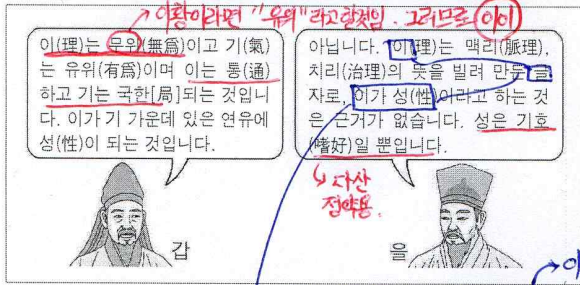 이황이라면 "유위"라고 할것임. 그러므로 이이
이(理)는 무위(無爲)이고 기(氣)
는 유위(有爲)이며 이는 통(通)
하고 기는 국한[局]되는 것입니
다. 이가 기 가운데 있은 연유에
성(性)이 되는 것입니다.
갑
아닙니다. 이(理)는 맥리(脈理),
치리(治理)의 뜻을 빌려 만든 글
자로, 이가 성(性)이라고 하는 것
은 근거가 없습니다. 성은 기호
(嗜好)일 뿐입니다.
다산
정약용.
을